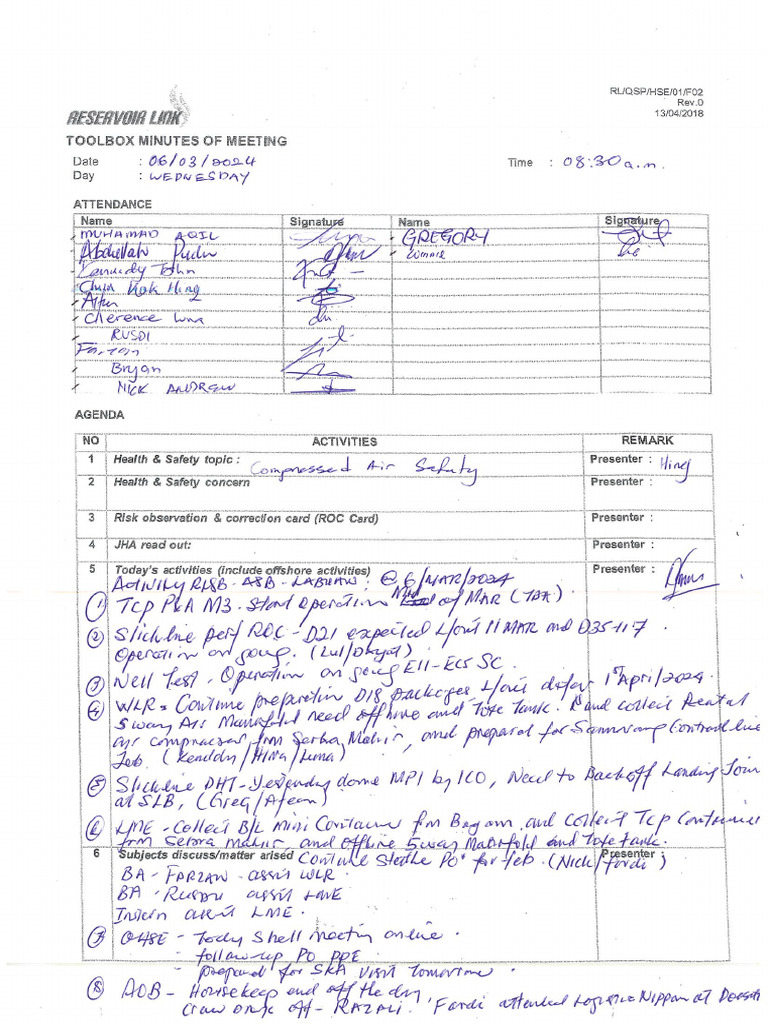 RL/QSP/HSE/01/F02
Rev.0
13/04/2018
RESERVOIR LINK
TOOLBOX MINUTES OF MEETING
Date : 06/03/2024 Time : 08:30 a.m.
Day : WEDNESDAY
ATTENDANCE
Name Signature Name Signature
MUHAMAD AQIL GREGORY
Abdullah
Kennedy John
Chua Kok Hing
Cherence
RUSDI
Farzan
Bryan
NICK ANDREW
AGENDA
NO ACTIVITIES REMARK
1 Health & Safety topic : Compressed Air Safety Presenter : Hing
2 Health & Safety concern Presenter :
3 Risk observation & correction card (ROC Card) Presenter :
4 JHA read out: Presenter :
5 Today's activities (include offshore activities) Presenter :
ACTIVITY RLSB - ASB - LABUAN : @ 6/MAR/2024
1 TCP P&A M3 - Start operation Mid of MAR
2 Slickline perf ROC - D21 expected L/out 11 MAR and D35-117.
Operation on going.
3 Well Test - Operation on going E11 - SC.
4 WLR = Continue preparation D18 packages L/out 1st April/2024.
5way Air Manifold need offhire and Tote Tank. and collect Rental
air compressor from Serba Mahir, and prepared for Samarang Contractline
Job. (Kenddy/Hing/Luna)
5 Slickline DHT - Yesterday done MPI by ICO, Need to Backoff Landing Join
at SLB, (Greg/)
6 LME - Collect B/L Mini Container from and collect TCP Container
from Serba Mahir, and offhire 5way Manifold and Tote Tank.
6 Subjects discuss/matter arised Continue PO for feb. (Nick/Fardi) Presenter :
BA - FARZAN - assist WLR
BA - Rusdi assist LME
Intern assist LME.
7 QHSE - Today Shell meeting online.
- follow-up PO PPE
- prepared for visit tomorrow.
8 AOB - Housekeep end off the day.
off - RAZALI. Fardi attended Nippon at